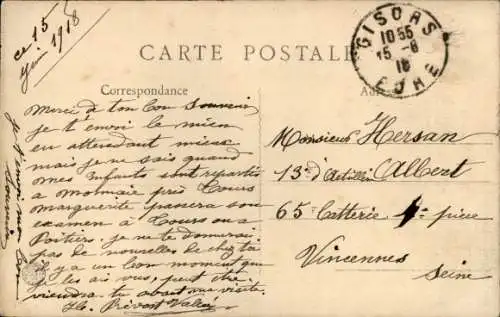 ce 15
Juin 1918
CARTE POSTALE
GISORS
10 55
15 -6
18
EURE
Correspondance
Merci à ton bon souvenir
je t'envoi le mien
en attendant mieux
mais je ne sais quand
mes Enfants sont repartis
a Monnaie près Tours
Marguerite passera son
examen à Tours ou a
Poitiers. je ne te demanderai
pas de nouvelles de chez toi
il y a un bon moment que
les ais vus, peut être
viendra tu avant ma visite.
Prévost Vallée
Monsieur Hersan
Albert
13e d'Artillerie
65e Batterie 4e pièce
Vincennes
Seine